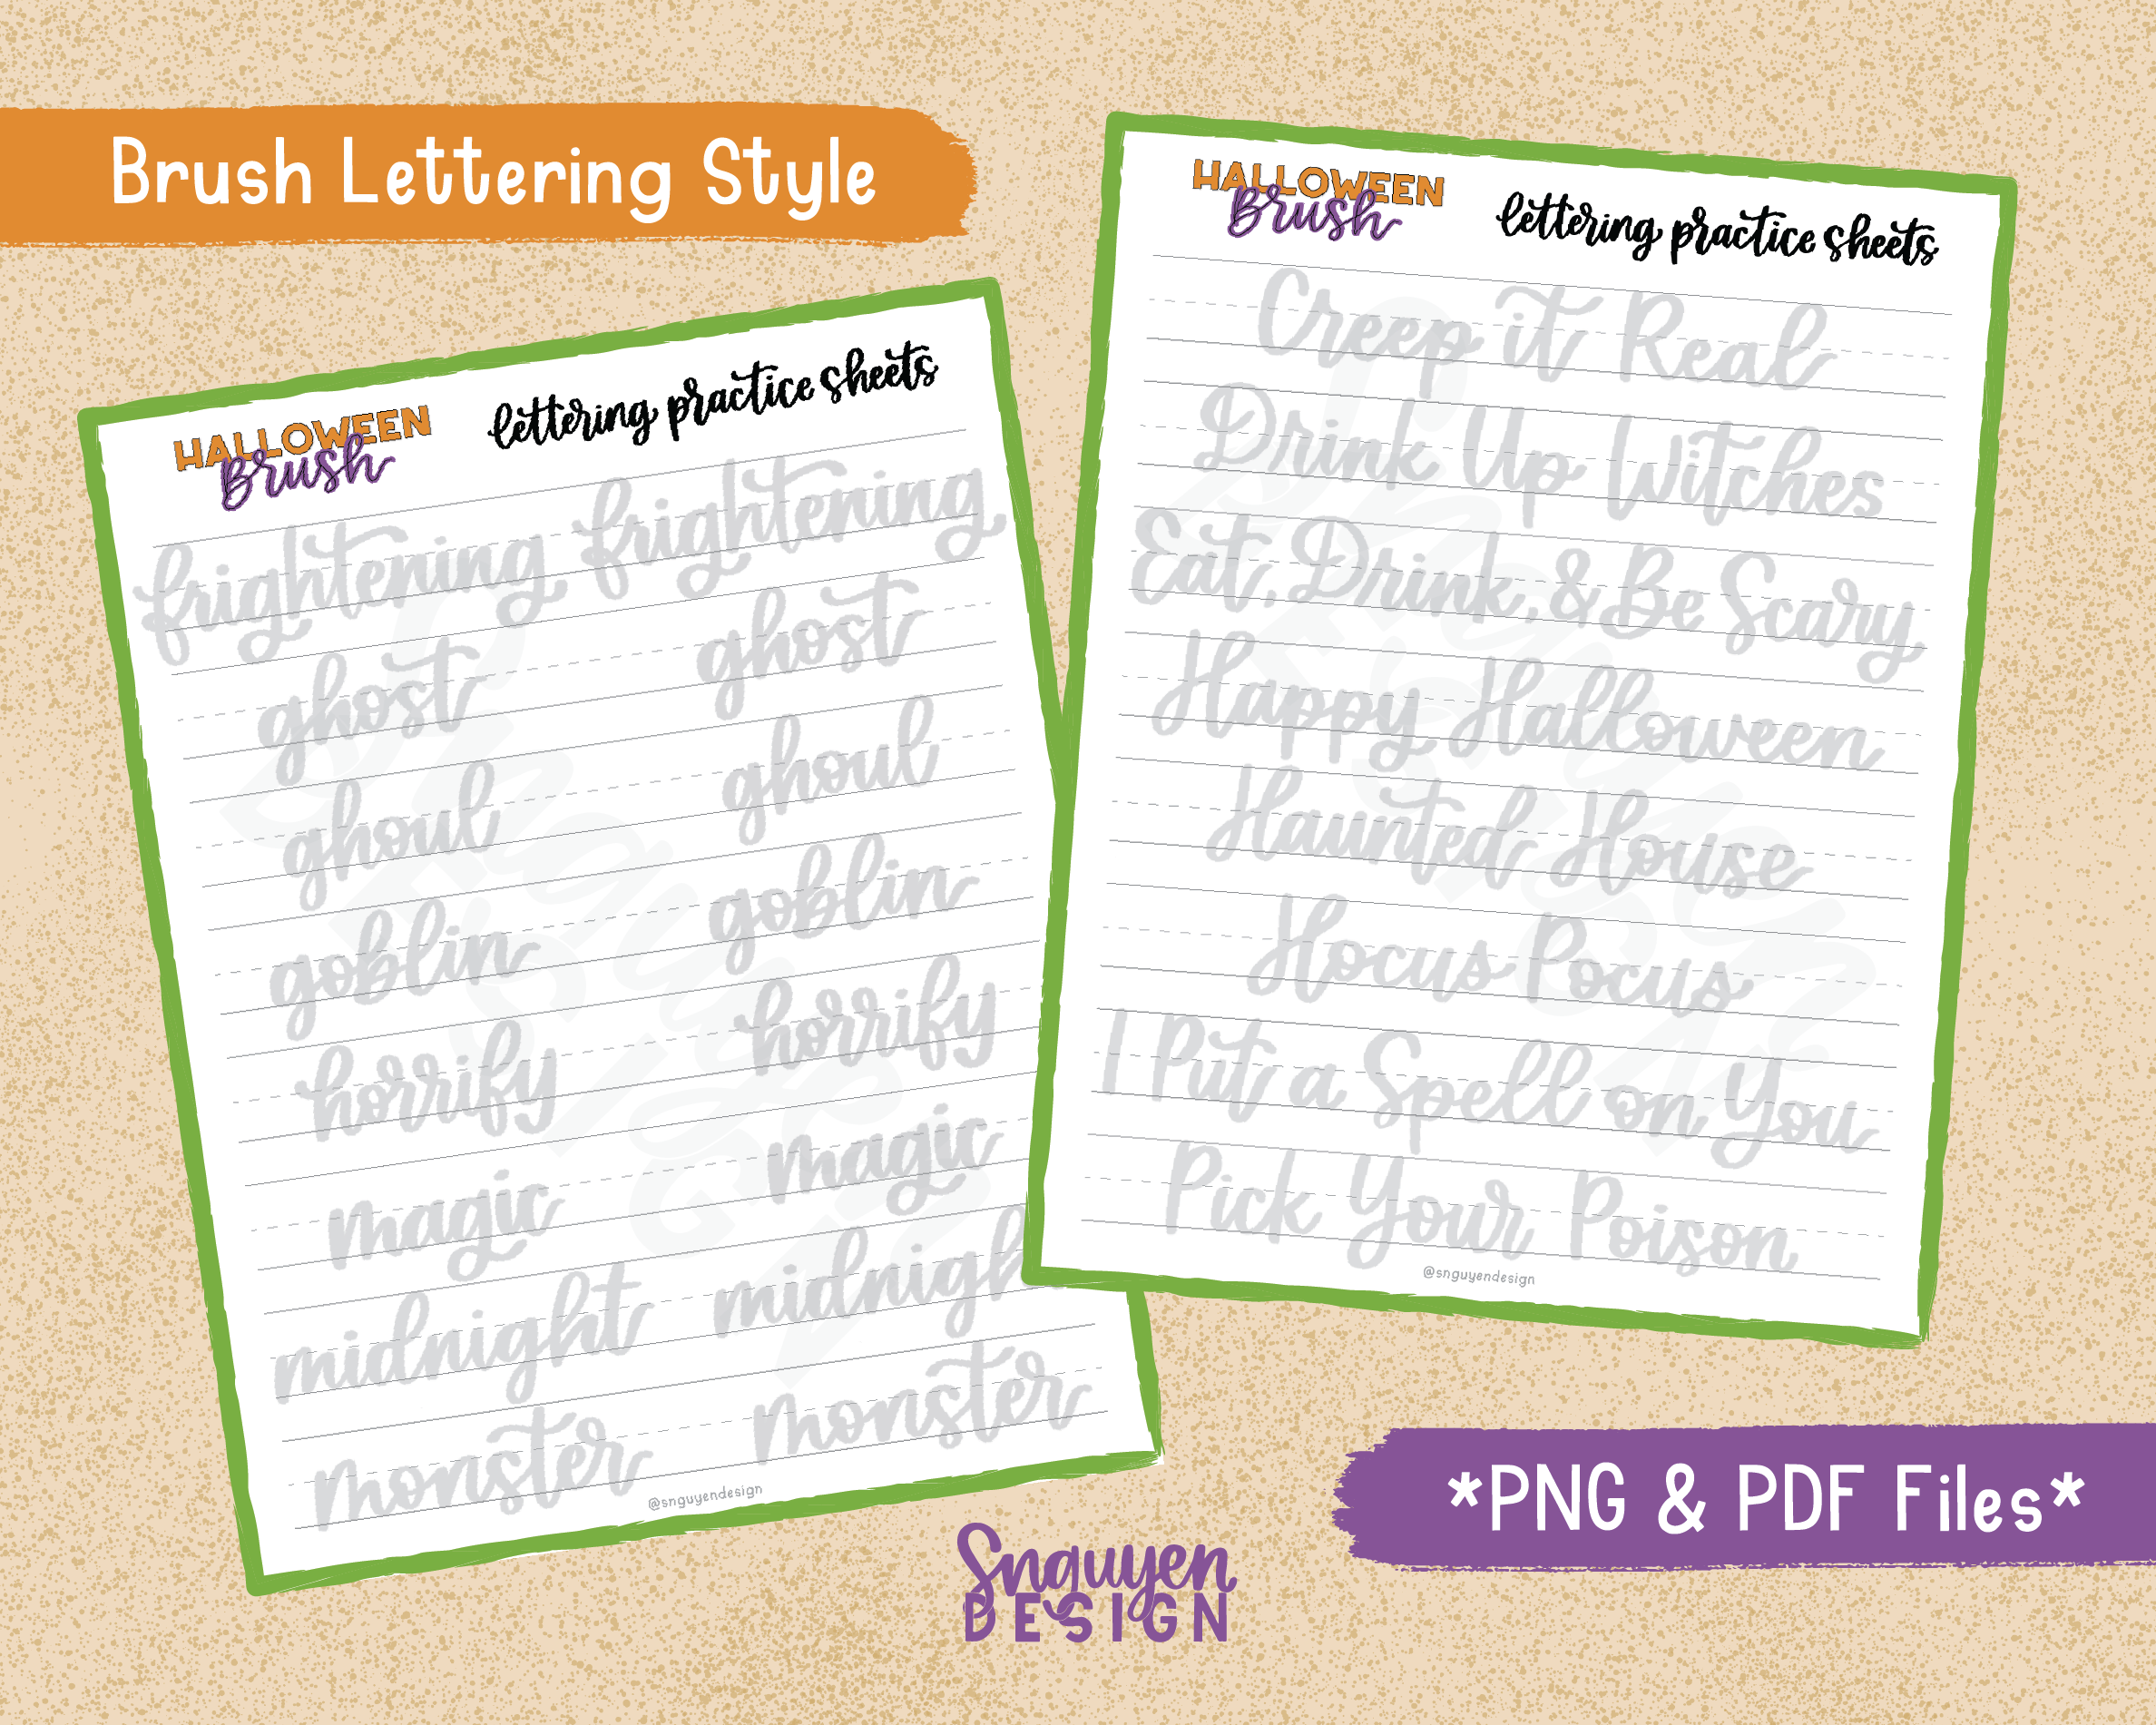 Brush Lettering Style
HALLOWEEN
Brush
lettering practice sheets
frightening frightening
ghost ghost
ghoul ghoul
goblin goblin
horrify horrify
magic magic
midnight midnigh
monster monster
@snguyendesign
HALLOWEEN
Brush
lettering practice sheets
Creep it Real
Drink Up Witches
Eat, Drink, & Be Scary
Happy Halloween
Haunted House
Hocus Pocus
I Put a Spell on You
Pick Your Poison
@snguyendesign
*PNG & PDF Files*
Snguyen
DESIGN